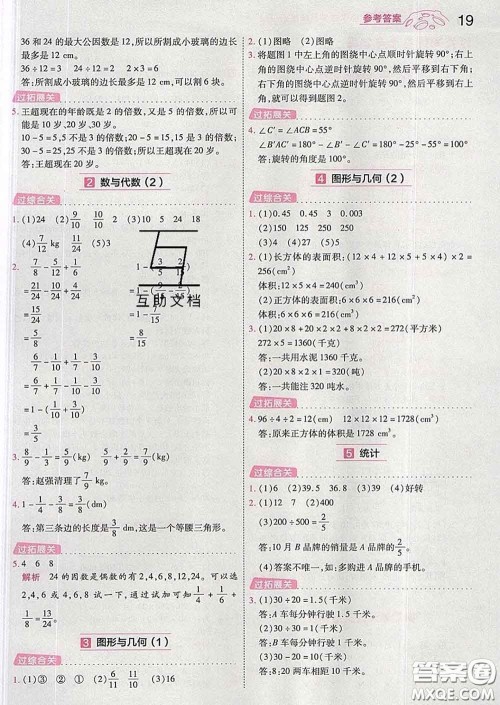 参考答案
19
36 和 24 的最大公因数是 12,所以所割成小玻璃的边长
最多是 12 cm。
36÷12=3 24÷12=2 3×2=6(块)
答:割成小玻璃的边长最多是 12 cm,可以割 6 块。
过拓展关
5. 王超现在的年龄既是 2 的倍数,又是 5 的倍数,所以可
能是 10 岁、20 岁、30 岁……
10-5=5,5 不是 3 的倍数;20-5=15,15 是 3 的倍数;
30-5=25,25 不是 3 的倍数,所以王超现在 20 岁。
答:王超现在 20 岁。
2 数与代数(2)
过综合关
1. (1)24 (2) 9/10 10/10 2 (3)10 5 24 18
(4) 7/12 kg 11/24 (5)3
2. 7/8 - 5/12 + 1/6
= 21/24 - 10/24 + 4/24
= 15/24
= 5/8
6/7 - 1/10 + 1/7 - 3/10
= 6/7 + 1/7 - 1/10 - 3/10
= 1-(1/10 + 3/10)
= 3/5
= 8/15
互助文档
答:赵强清理了 7/9 kg。
4. 1 - 1/4 - 3/8 = 3/8 (dm)
答:第三条边的长度是 3/8 dm,这是一个等腰三角形。
过拓展关
5. 4 6 8
解析 24 的因数是偶数的有 2,4,6,8,12,24。可以选
2,4,6 或 4,6,8 试一下,通过试加可知 1/4 + 1/6 +
3 图形与几何(1)
过综合关
1. (1)③ ② ① (2) 6/11 11/10 (3)16
2. (1)图略 (2)图略
3. 将题图 1 中左上角的图绕中心点顺时针旋转 90°,
右上角的图绕中心点逆时针旋转 90°,然后平移到右下角;
右下角的图绕中心点逆时针旋转 90°,然后平移到右上
角,就可以得到题图 2。
过拓展关
4. ∠C′=∠ACB=55°
∠B′AC′=180°-∠B′-∠C′=180°-25°-55°=100°
答:旋转的角度是 100°。
4 图形与几何(2)
过综合关
1. (1)0.45 0.45 3 0.003
2. (1)长方体的表面积:(12×4+12×5+4×5)×2=
256(cm²)
体积:12×5×4=240(cm³)
(2)正方体的表面积:6×6×6=216(cm²)
体积:6×6×6=216(cm³)
3. (1)20×8+20×2×2+8×2×2=272(平方米)
272×5=1360(千克)
答:一共用水泥 1360 千克。
(2)20×8×2=320(吨)
答:一共能注 320 吨水。
过拓展关
4. 96÷4÷2=12(cm) 12×12×12=1728(cm³)
答:原来正方体的体积是 1728 cm³。
5 统计
过综合关
1. (1)6 (2)39.5 36.8 (3)4 (4)好转
2. (1)12 7 (2)400
(3)200÷500= 2/5
答:10 月 B 品牌的销量是 A 品牌的 2/5。
(4)答案不唯一,如:多进些 A 品牌的手机。
过拓展关
3. (1)30÷20=1.5(千米)
答:A 车每分钟行驶 1.5 千米。
(2)30÷30=1(千米)
答:B 车每分钟行驶 1 千米。
(3)30-20×1=10(千米)
答:8:20 两车相距 10 千米。
答案圈
MXQE.COM